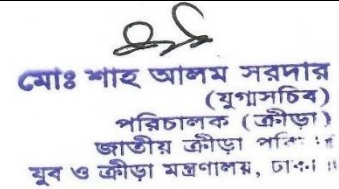 মোঃ শাহ আলম সরদার
(যুগ্মসচিব)
পরিচালক (ক্রীড়া)
জাতীয় ক্রীড়া
যুব ও ক্রীড়া মন্ত্রণালয়,